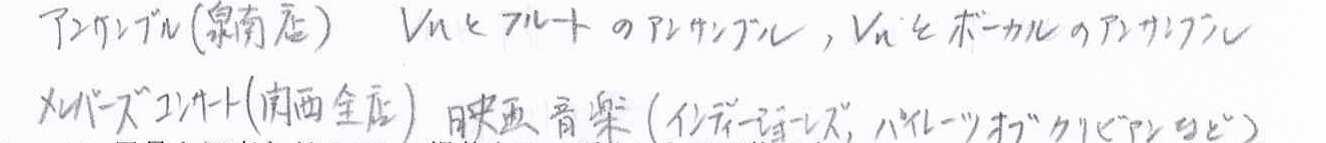 アンサンブル(泉南店) Vnとフルートのアンサンブル, Vnとボーカルのアンサンブル
メンバーズコンサート(関西全店) 映画音楽(インディージョーンズ, パイレーツオブカリビアンなど)